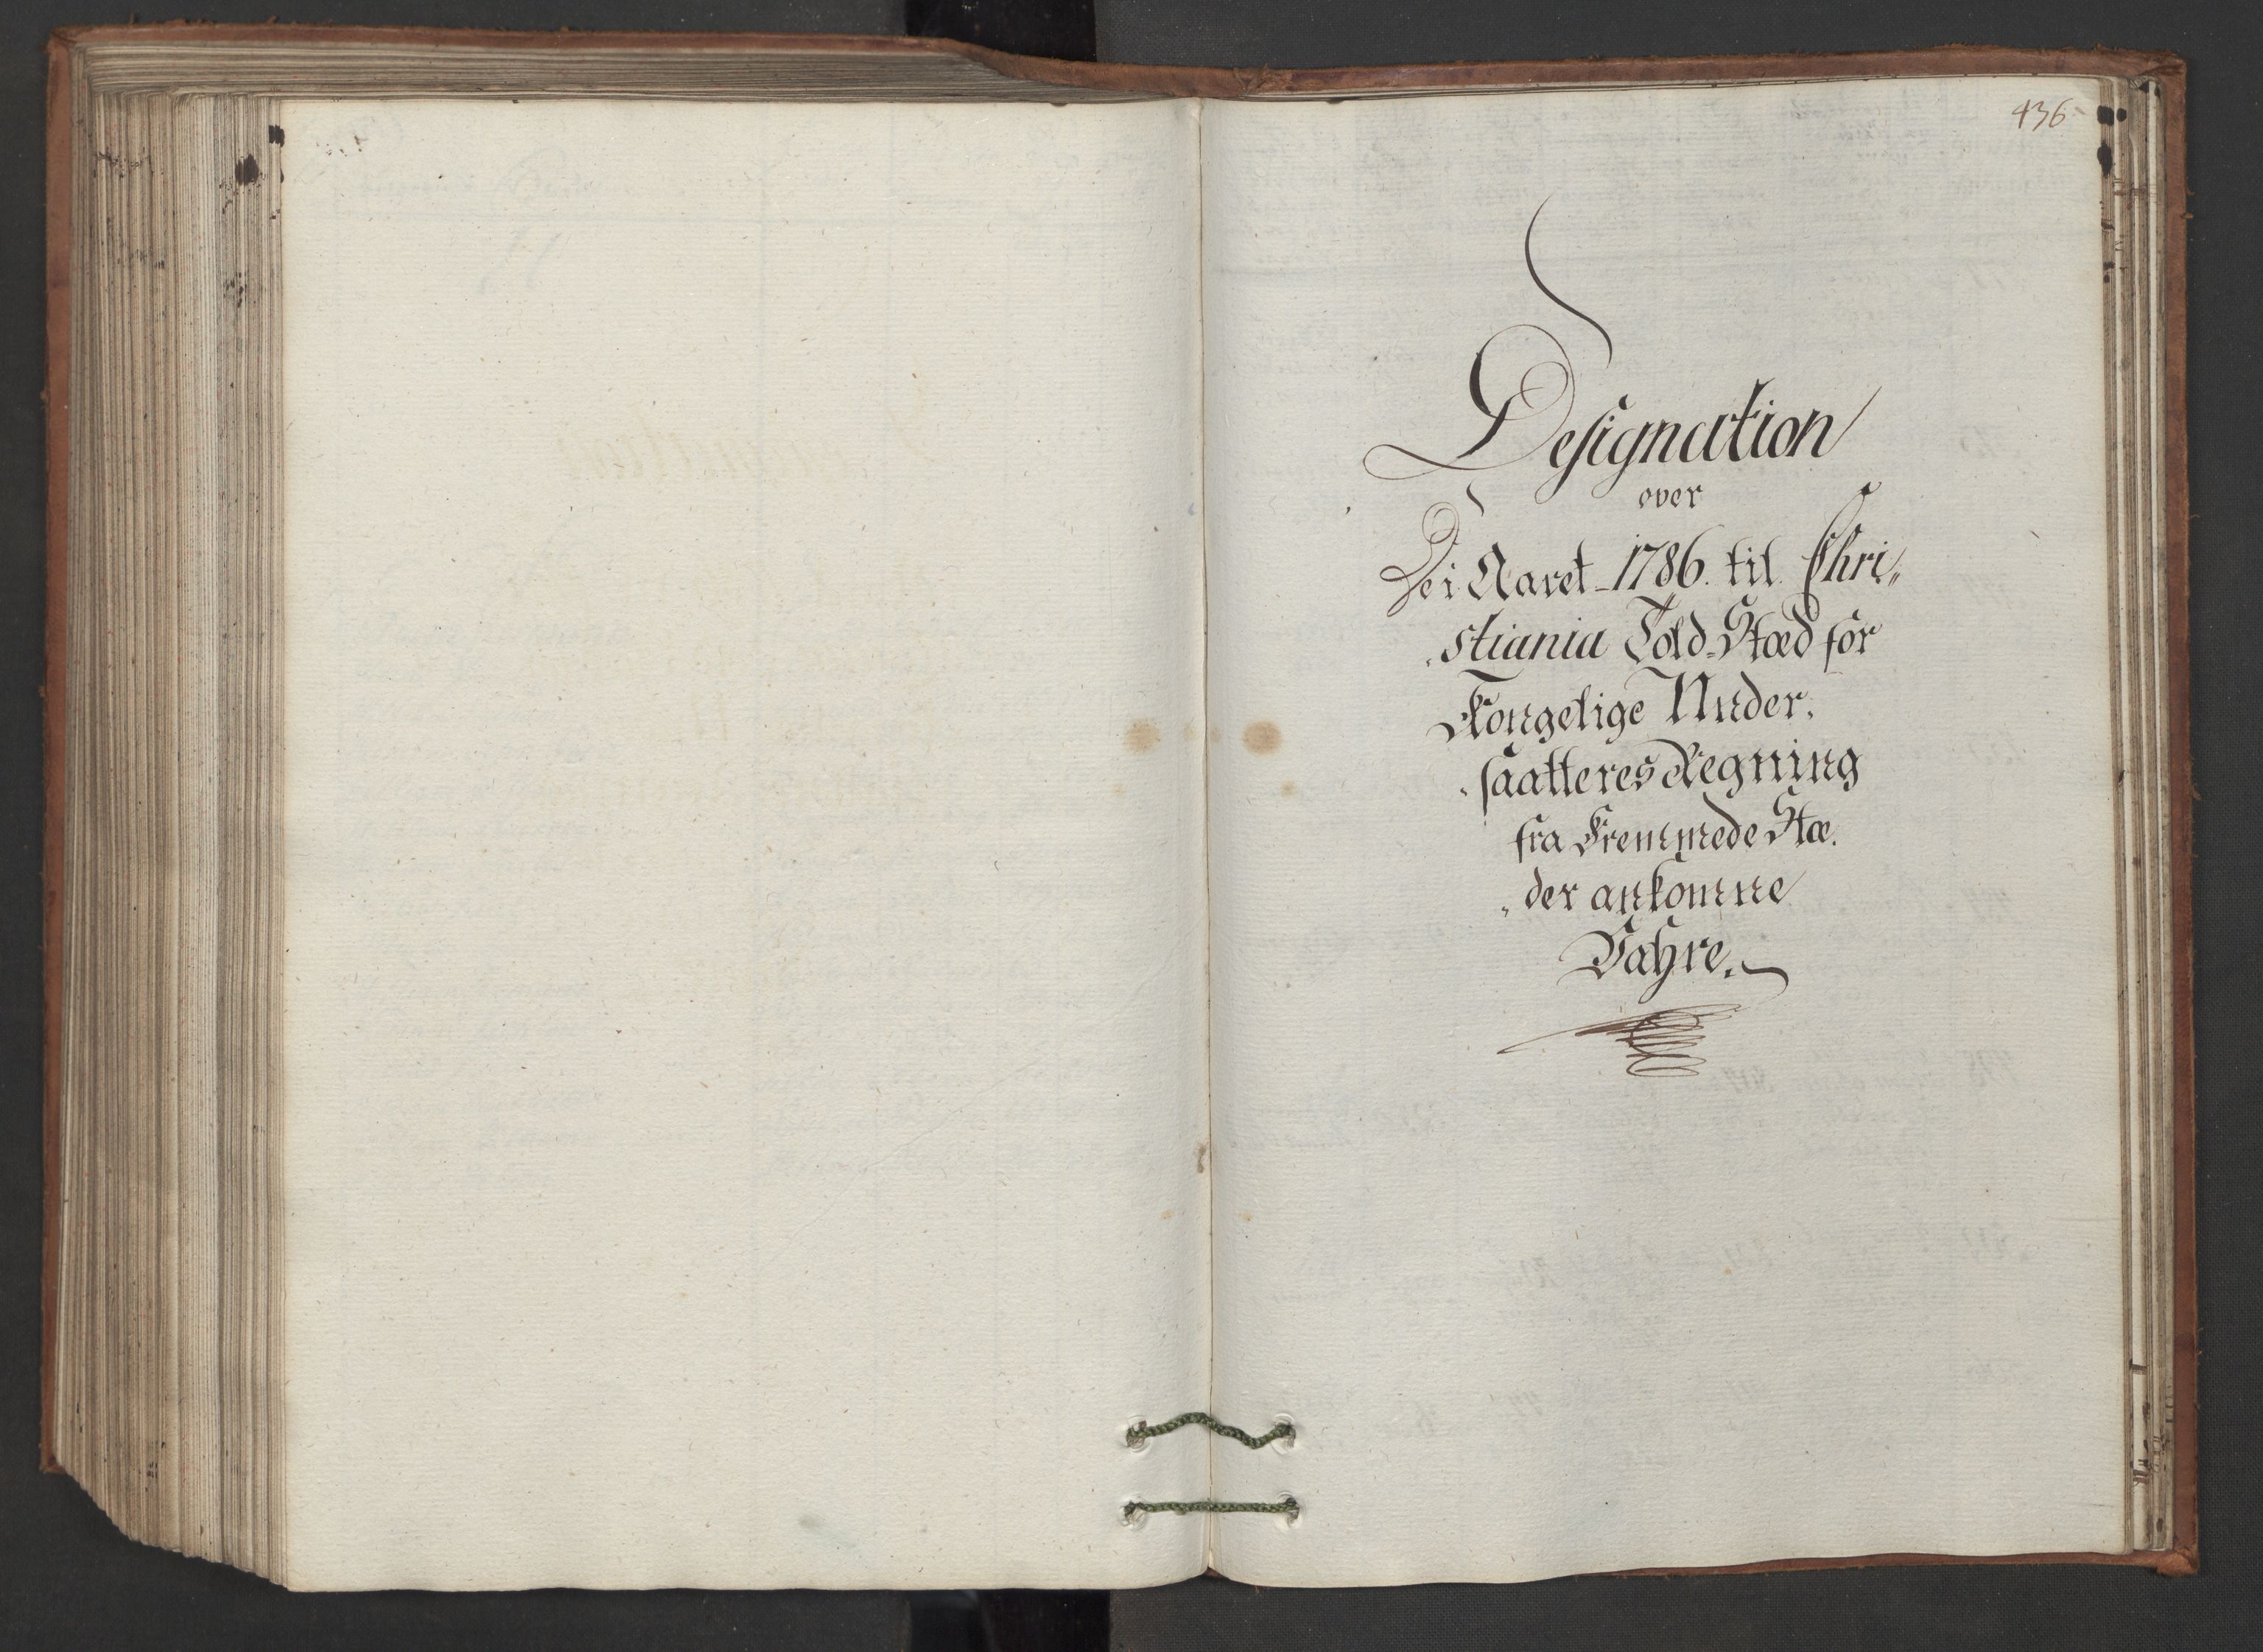 436
Designation
over
De i Aaret 1786. til Chri„
„stiania Told-Stæd for
Kongelige Under.
„saatteres Regning
fra Fremmede Stæ.
„der ankomne
Vahre.